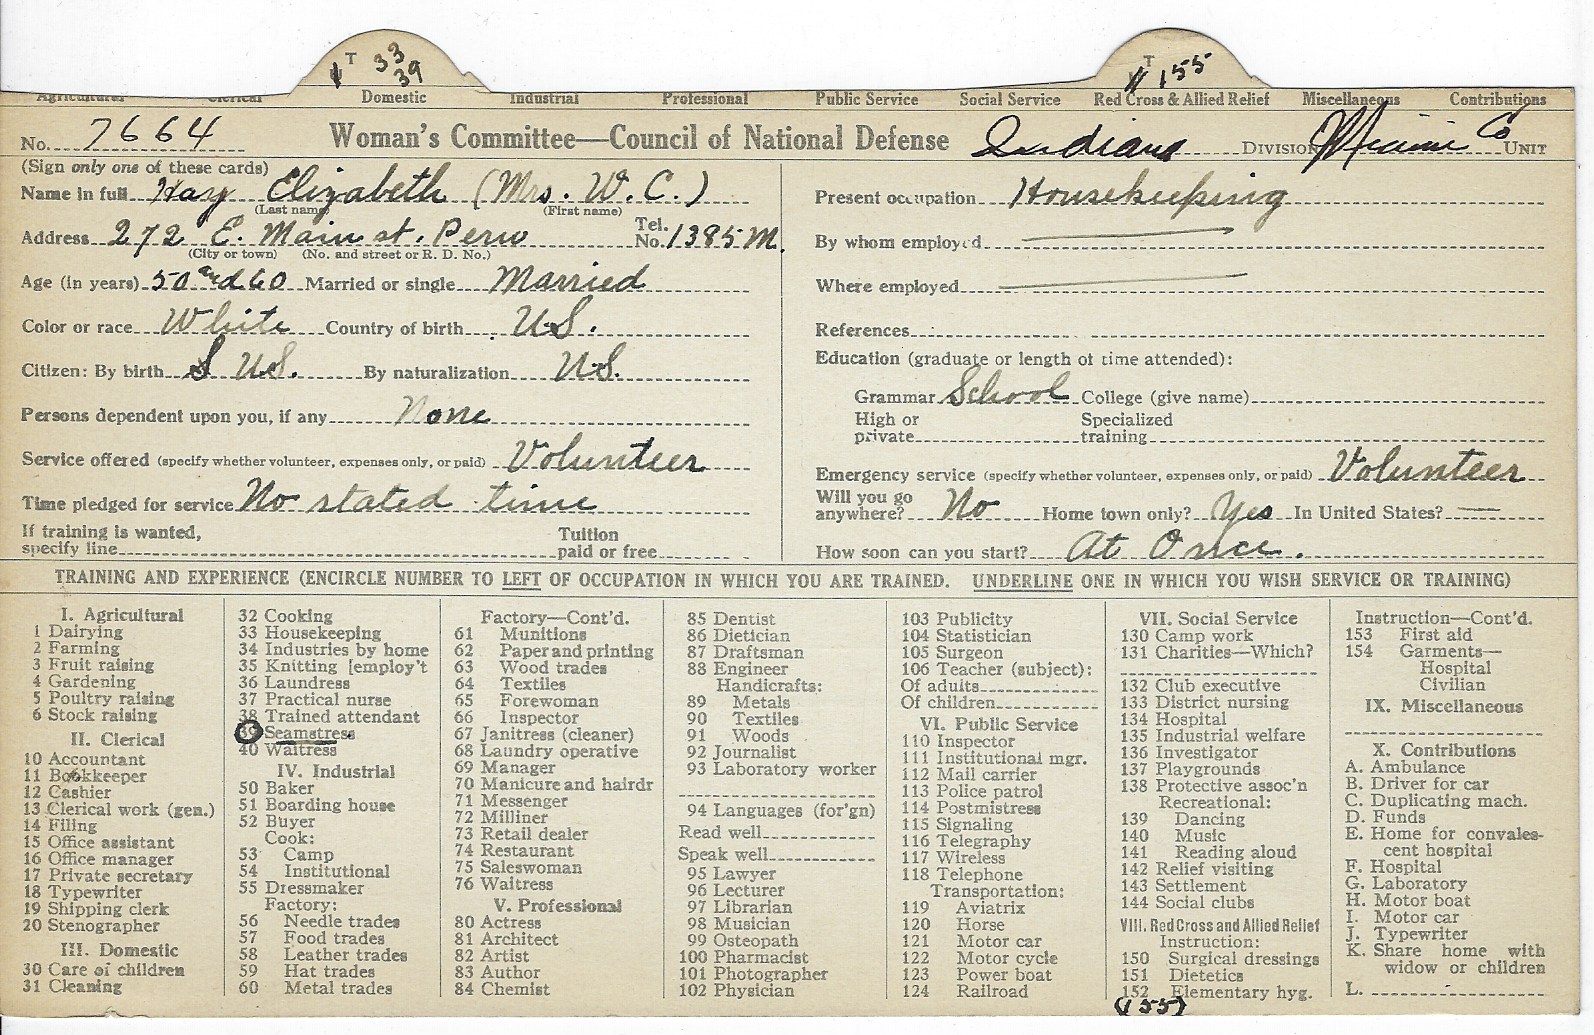 T 33 39 T 155
Agricultural Clerical Domestic Industrial Professional Public Service Social Service Red Cross & Allied Relief Miscellaneous Contributions
No. 7664 Woman's Committee—Council of National Defense Indiana DIVISION Miami Co UNIT
(Sign only one of these cards)
Name in full Hay Elizabeth (Mrs. W. C.)
(Last name) (First name)
Address 272 E. Main st. Peru Tel. No. 1385 M.
(City or town) (No. and street or R. D. No.)
Age (in years) 50 and 60 Married or single Married
Color or race White Country of birth U.S.
Citizen: By birth S U.S. By naturalization U.S.
Persons dependent upon you, if any None
Service offered (specify whether volunteer, expenses only, or paid) Volunteer
Time pledged for service No stated time
If training is wanted, specify line Tuition paid or free
Present occupation Housekeeping
By whom employed
Where employed
References
Education (graduate or length of time attended):
Grammar School College (give name)
High or private Specialized training
Emergency service (specify whether volunteer, expenses only, or paid) Volunteer
Will you go anywhere? No Home town only? Yes In United States? —
How soon can you start? At Once.
TRAINING AND EXPERIENCE (ENCIRCLE NUMBER TO LEFT OF OCCUPATION IN WHICH YOU ARE TRAINED. UNDERLINE ONE IN WHICH YOU WISH SERVICE OR TRAINING)
I. Agricultural
1 Dairying
2 Farming
3 Fruit raising
4 Gardening
5 Poultry raising
6 Stock raising
II. Clerical
10 Accountant
11 Bookkeeper
12 Cashier
13 Clerical work (gen.)
14 Filing
15 Office assistant
16 Office manager
17 Private secretary
18 Typewriter
19 Shipping clerk
20 Stenographer
III. Domestic
30 Care of children
31 Cleaning
32 Cooking
33 Housekeeping
34 Industries by home
35 Knitting [employ't
36 Laundress
37 Practical nurse
38 Trained attendant
39 Seamstress
40 Waitress
IV. Industrial
50 Baker
51 Boarding house
52 Buyer
Cook:
53 Camp
54 Institutional
55 Dressmaker
Factory:
56 Needle trades
57 Food trades
58 Leather trades
59 Hat trades
60 Metal trades
Factory—Cont'd.
61 Munitions
62 Paper and printing
63 Wood trades
64 Textiles
65 Forewoman
66 Inspector
67 Janitress (cleaner)
68 Laundry operative
69 Manager
70 Manicure and hairdr
71 Messenger
72 Milliner
73 Retail dealer
74 Restaurant
75 Saleswoman
76 Waitress
V. Professional
80 Actress
81 Architect
82 Artist
83 Author
84 Chemist
85 Dentist
86 Dietician
87 Draftsman
88 Engineer
Handicrafts:
89 Metals
90 Textiles
91 Woods
92 Journalist
93 Laboratory worker
94 Languages (for'gn)
Read well
Speak well
95 Lawyer
96 Lecturer
97 Librarian
98 Musician
99 Osteopath
100 Pharmacist
101 Photographer
102 Physician
103 Publicity
104 Statistician
105 Surgeon
106 Teacher (subject):
Of adults
Of children
VI. Public Service
110 Inspector
111 Institutional mgr.
112 Mail carrier
113 Police patrol
114 Postmistress
115 Signaling
116 Telegraphy
117 Wireless
118 Telephone
Transportation:
119 Aviatrix
120 Horse
121 Motor car
122 Motor cycle
123 Power boat
124 Railroad
VII. Social Service
130 Camp work
131 Charities—Which?
132 Club executive
133 District nursing
134 Hospital
135 Industrial welfare
136 Investigator
137 Playgrounds
138 Protective assoc'n
Recreational:
139 Dancing
140 Music
141 Reading aloud
142 Relief visiting
143 Settlement
144 Social clubs
VIII. Red Cross and Allied Relief
Instruction:
150 Surgical dressings
151 Dietetics
152 Elementary hyg.
(155)
Instruction—Cont'd.
153 First aid
154 Garments—
Hospital
Civilian
IX. Miscellaneous
X. Contributions
A. Ambulance
B. Driver for car
C. Duplicating mach.
D. Funds
E. Home for convales-
cent hospital
F. Hospital
G. Laboratory
H. Motor boat
I. Motor car
J. Typewriter
K. Share home with
widow or children
L.